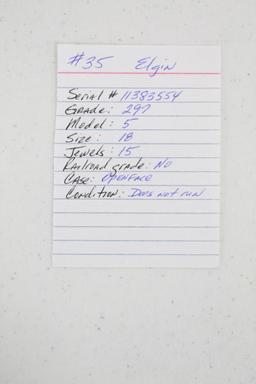 #35 Elgin
Serial # 11383554
Grade: 297
Model: 5
Size: 18
Jewels: 15
Railroad grade: No
Case: Openface
Condition: Does not run